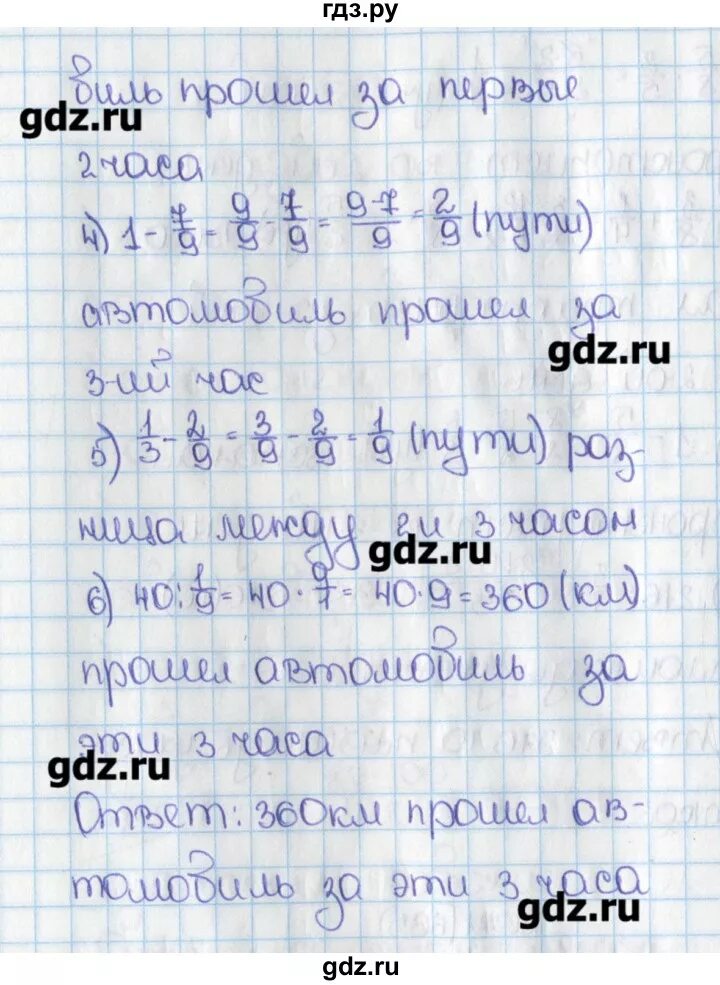 гдз.ру
биль прошел за первые
gdz.ru
2 часа
4) 1 - 7/9 = 9/9 - 7/9 = 9-7/9 = 2/9 (пути)
автомобиль прошел за
gdz.ru
3-ий час
5) 1/3 - 2/9 = 3/9 - 2/9 = 1/9 (пути) раз-
ница между 2 и 3 часом
gdz.ru
6) 40 : 1/9 = 40 · 9/1 = 40 · 9 = 360 (км)
прошел автомобиль за
эти 3 часа
gdz.ru
Ответ: 360 км прошел ав-
томобиль за эти 3 часа
gdz.ru
gdz.ru